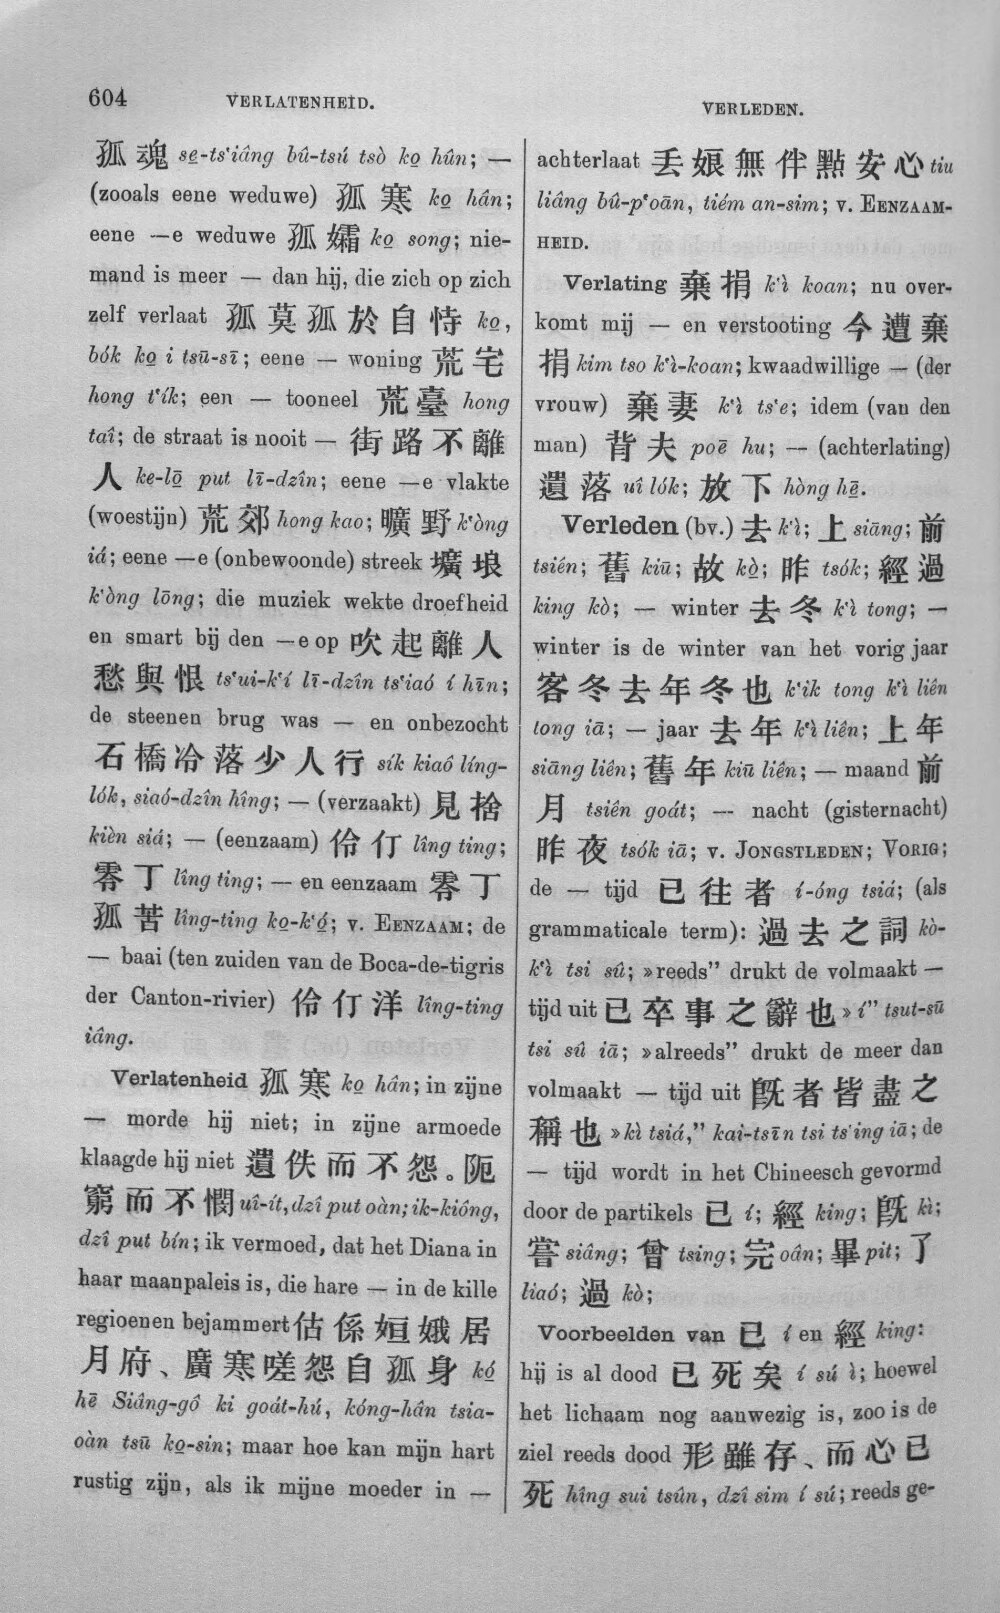 604
VERLATENHEID.
VERLEDEN.
孤魂 se̲-tsʻiâng bû-tsú tsò ko̲ hûn; —
(zooals eene weduwe) 孤寒 ko̲ hân;
eene —e weduwe 孤孀 ko̲ song; nie-
mand is meer — dan hij, die zich op zich
zelf verlaat 孤莫孤於自恃 ko̲,
bók ko̲ i tsū-sī; eene — woning 荒宅
hong tʻík; een — tooneel 荒臺 hong
taî; de straat is nooit — 街路不離
人 ke-lō̲ put lī-dzîn; eene —e vlakte
(woestijn) 荒郊 hong kao; 曠野 kʻòng
iá; eene —e (onbewoonde) streek 壙埌
kʻòng lōng; die muziek wekte droefheid
en smart bij den —e op 吹起離人
愁與恨 tsʻui-kʻí lī-dzîn tsʻiaó í hīn;
de steenen brug was — en onbezocht
石橋冷落少人行 sík kiaô líng-
lók, siaó-dzîn hîng; — (verzaakt) 見捨
kièn siá; — (eenzaam) 伶仃 lîng ting;
零丁 lîng ting; — en eenzaam 零丁
孤苦 lîng-ting ko̲-kʻó̲; v. EENZAAM; de
— baai (ten zuiden van de Boca-de-tigris
der Canton-rivier) 伶仃洋 lîng-ting
iâng.
Verlatenheid 孤寒 ko̲ hân; in zijne
— morde hij niet; in zijne armoede
klaagde hij niet 遺佚而不怨。阨
窮而不憫 uî-ít, dzî put oàn; ik-kiông,
dzî put bín; ik vermoed, dat het Diana in
haar maanpaleis is, die hare — in de kille
regioenen bejammert 估係姮娥居
月府、廣寒嗟怨自孤身 kó̲
hē Siâng-gô ki goát-hú, kóng-hân tsia-
oàn tsū ko̲-sin; maar hoe kan mijn hart
rustig zijn, als ik mijne moeder in —
achterlaat 丢娘無伴點安心 tiu
liâng bû-pʻoān, tiém an-sim; v. EENZAAM-
HEID.
Verlating 棄捐 kʻì koan; nu over-
komt mij — en verstooting 今遭棄
捐 kim tso kʻì-koan; kwaadwillige — (der
vrouw) 棄妻 kʻì tsʻe; idem (van den
man) 背夫 poē hu; — (achterlating)
遺落 uî lók; 放下 hòng hē.
Verleden (bv.) 去 kʻì; 上 siāng; 前
tsién; 舊 kiū; 故 kò̲; 昨 tsók; 經過
king kò; — winter 去冬 kʻì tong; —
winter is de winter van het vorig jaar
客冬去年冬也 kʻik tong kʻì liên
tong iā; — jaar 去年 kʻì liên; 上年
siāng liên; 舊年 kiū liên; — maand 前
月 tsiên goát; — nacht (gisternacht)
昨夜 tsók iā; v. JONGSTLEDEN; VORIG;
de — tijd 已往者 í-óng tsiá; (als
grammaticale term): 過去之詞 kò-
kʻì tsi sû; »reeds” drukt de volmaakt —
tijd uit 已卒事之辭也 » í” tsut-sū
tsi sû iā; »alreeds” drukt de meer dan
volmaakt — tijd uit 旣者皆盡之
稱也 »kì tsiá,” kai-tsīn tsi tsʻing iā; de
— tijd wordt in het Chineesch gevormd
door de partikels 已 í; 經 king; 旣 kì;
嘗 siâng; 曾 tsing; 完 oân; 畢 pit; 了
liaó; 過 kò;
Voorbeelden van 已 í en 經 king:
hij is al dood 已死矣 í sú ì; hoewel
het lichaam nog aanwezig is, zoo is de
ziel reeds dood 形雖存、而心已
死 hîng sui tsûn, dzî sim í sú; reeds ge-